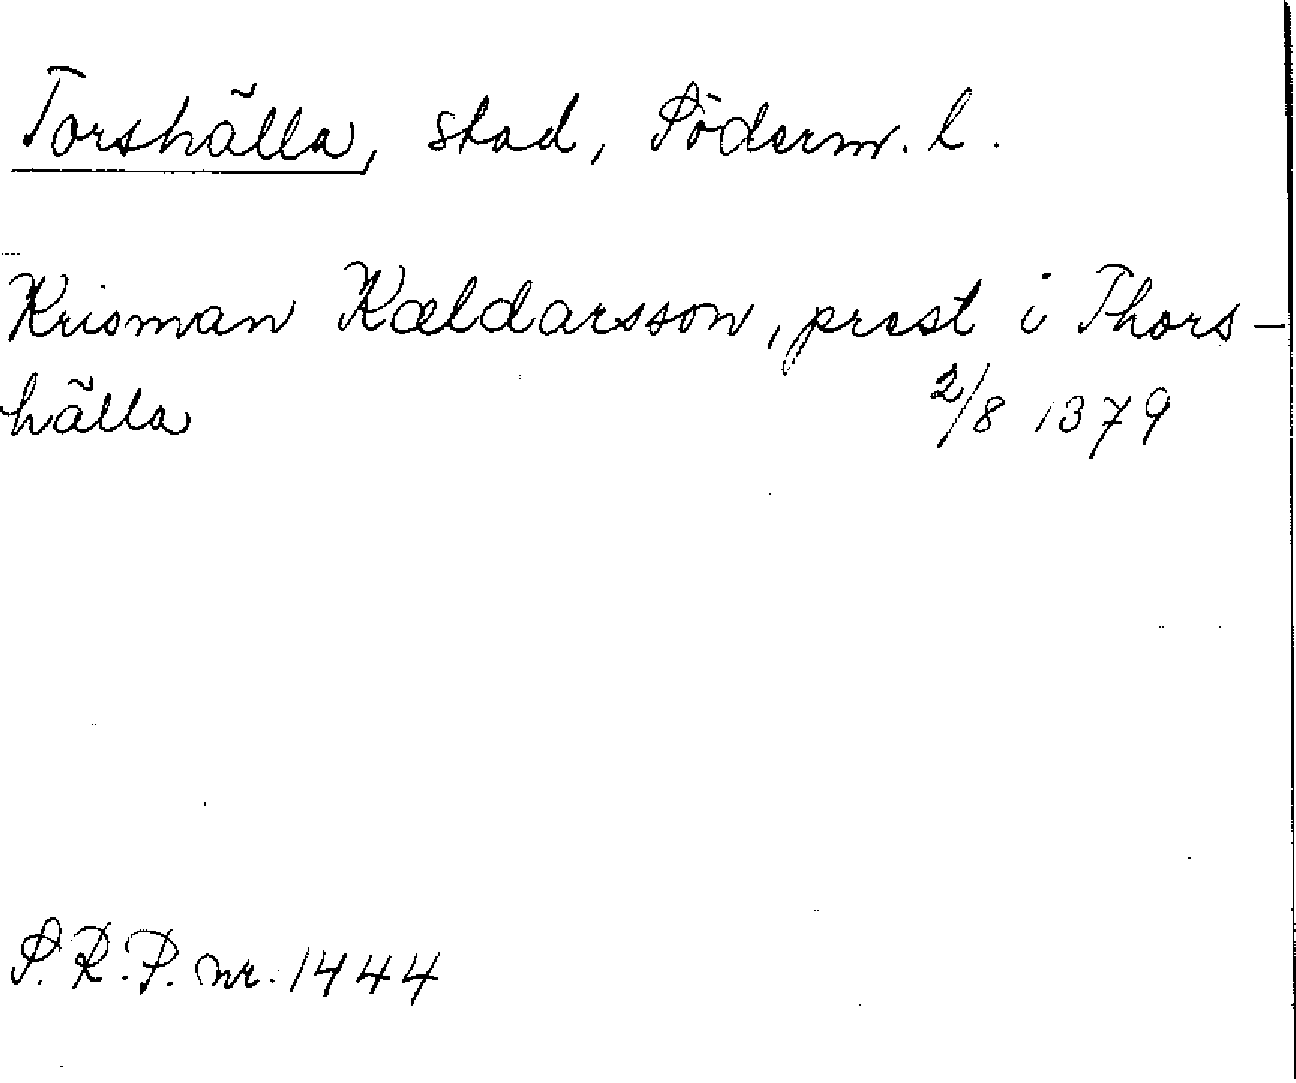 Torshälla, stad, Söderm. l.
Krisman Kældarsson, prest i Thors-
hälla 2/8 1379
S.R.P. nr. 1444